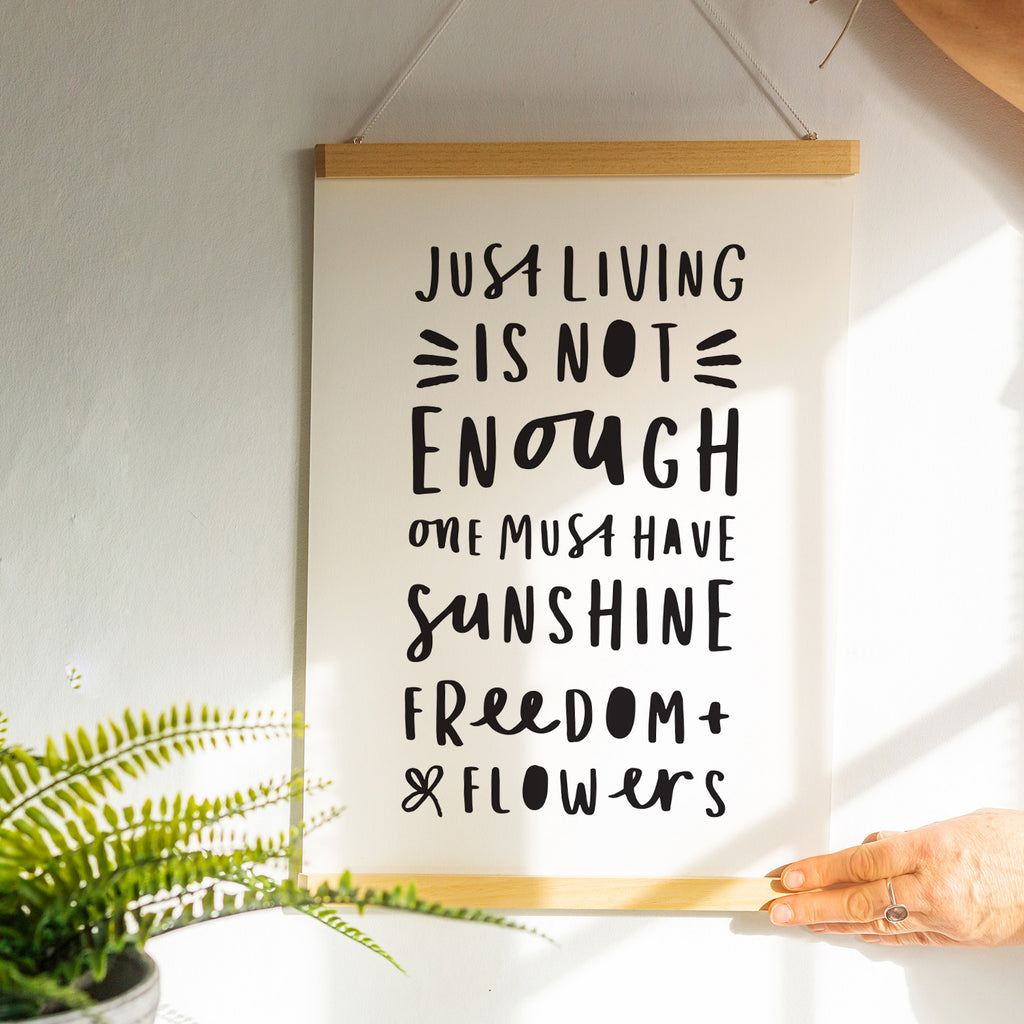 JUST LIVING
IS NOT
ENOUGH
ONE MUST HAVE
SUNSHINE
FREEDOM +
FLOWERS